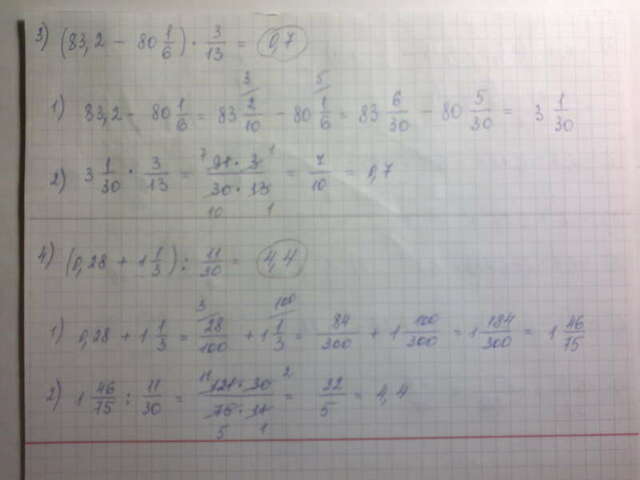 3) (83,2 − 80 1/6) · 3/13 = 0,7
1) 83,2 − 80 1/6 = 83 2/10 − 80 1/6 = 83 6/30 − 80 5/30 = 3 1/30
2) 3 1/30 · 3/13 = 91 · 3 / 30 · 13 = 7/10 = 0,7
4) (0,28 + 1 1/3) : 11/30 = 4,4
1) 0,28 + 1 1/3 = 28/100 + 1 1/3 = 84/300 + 1 100/300 = 1 184/300 = 1 46/75
2) 1 46/75 : 11/30 = 121 · 30 / 75 · 11 = 22/5 = 4,4